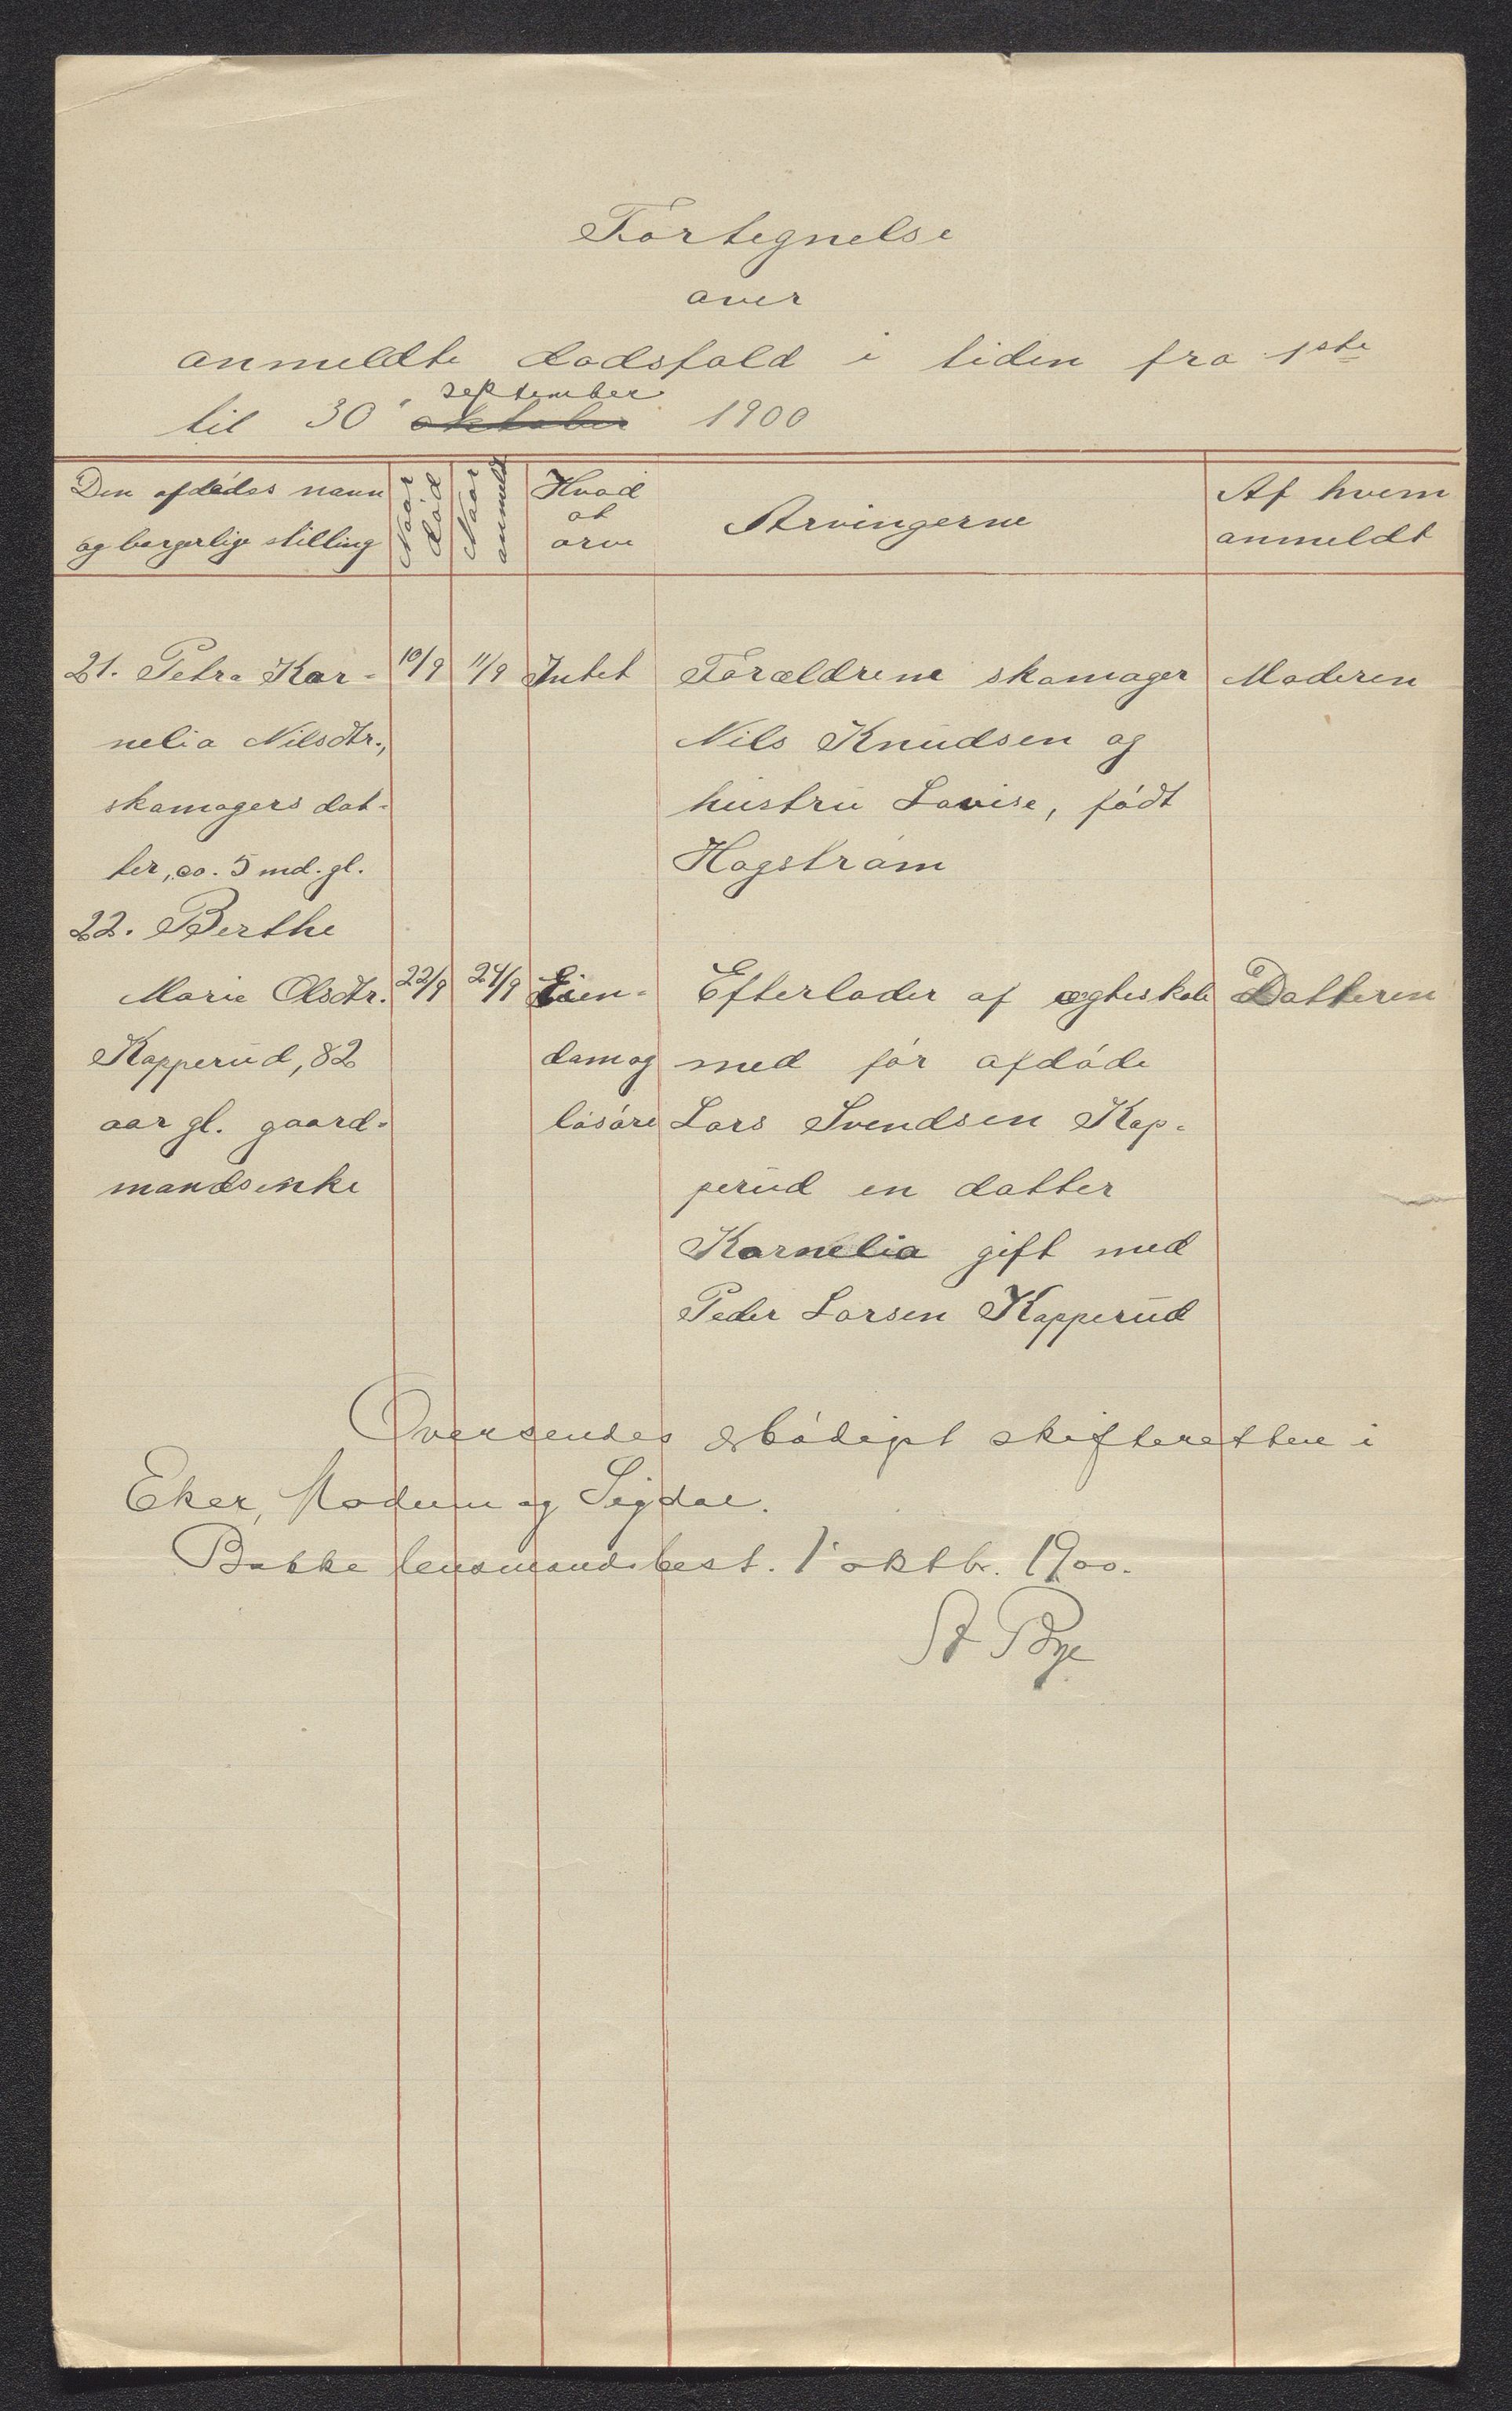 Fortegnelse
over
anmeldte dødsfald i tiden fra 1ste
september
til 30' oktober 1900
Den afdødes navn
og borgerlige stilling
Naar
død
Naar
anmeldt
Hvad
at
arve
Arvingerne
Af hvem
anmeldt
21. Petra Kor- 10/9 11/9 Intet Forældrene skomager Moderen
nelia Nilsdtr., Nils Knudsen og
skomagers dat- hustru Lovise, født
ter, ca. 5 md. gl. Hagstrøm
22. Berthe
Marie Olsdtr. 22/9 24/9 Eien- Efterlader af ægteskab Datteren
Kopperud, 82 dom og med før afdøde
aar gl. gaard- løsøre Lars Svendsen Kop-
mandsenke perud en datter
Kornelia gift med
Peder Larsen Kopperud
Oversendes ærbødigst skifteretten i
Eker, Modum og Sigdal.
Bakke lensmandsbest. 1' oktbr. 1900.
St Bye